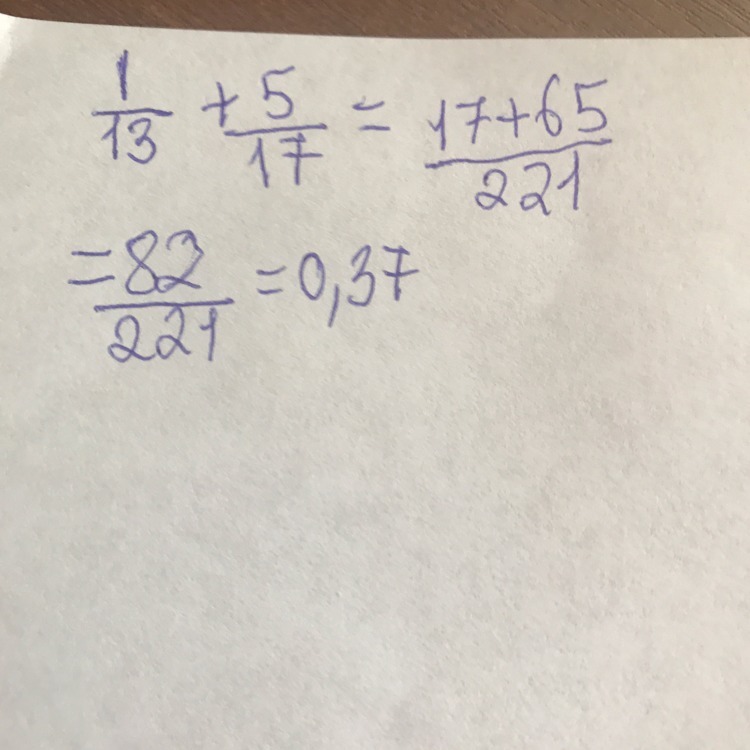 1/13 + 5/17 = (17+65)/221
= 82/221 = 0,37